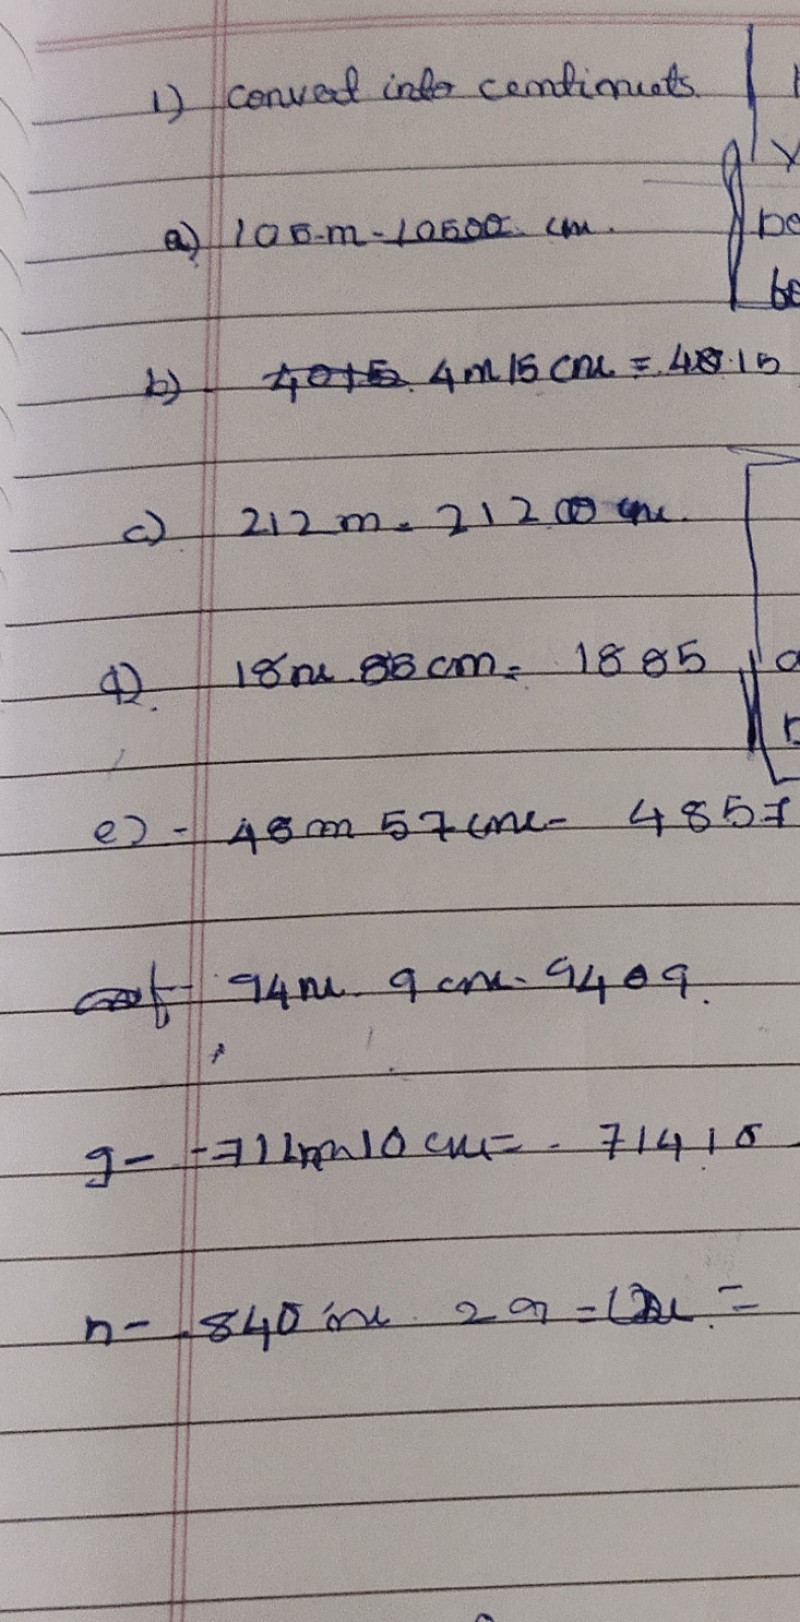 1) convert into centimets
a) 105 m - 10500 cm.
b) 4m 15 cm = 4015
c) 212 m = 21200 cm.
d) 18m 85 cm = 1885
e) - 48m 57 cm - 4857
f - 94m 9 cm - 9409.
g - 714m 10 cm = 71410
h - 840 m 29 =